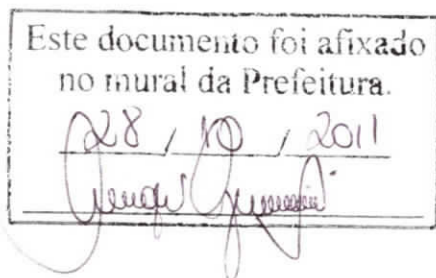 Este documento foi afixado
no mural da Prefeitura.
28 / 10 / 2011